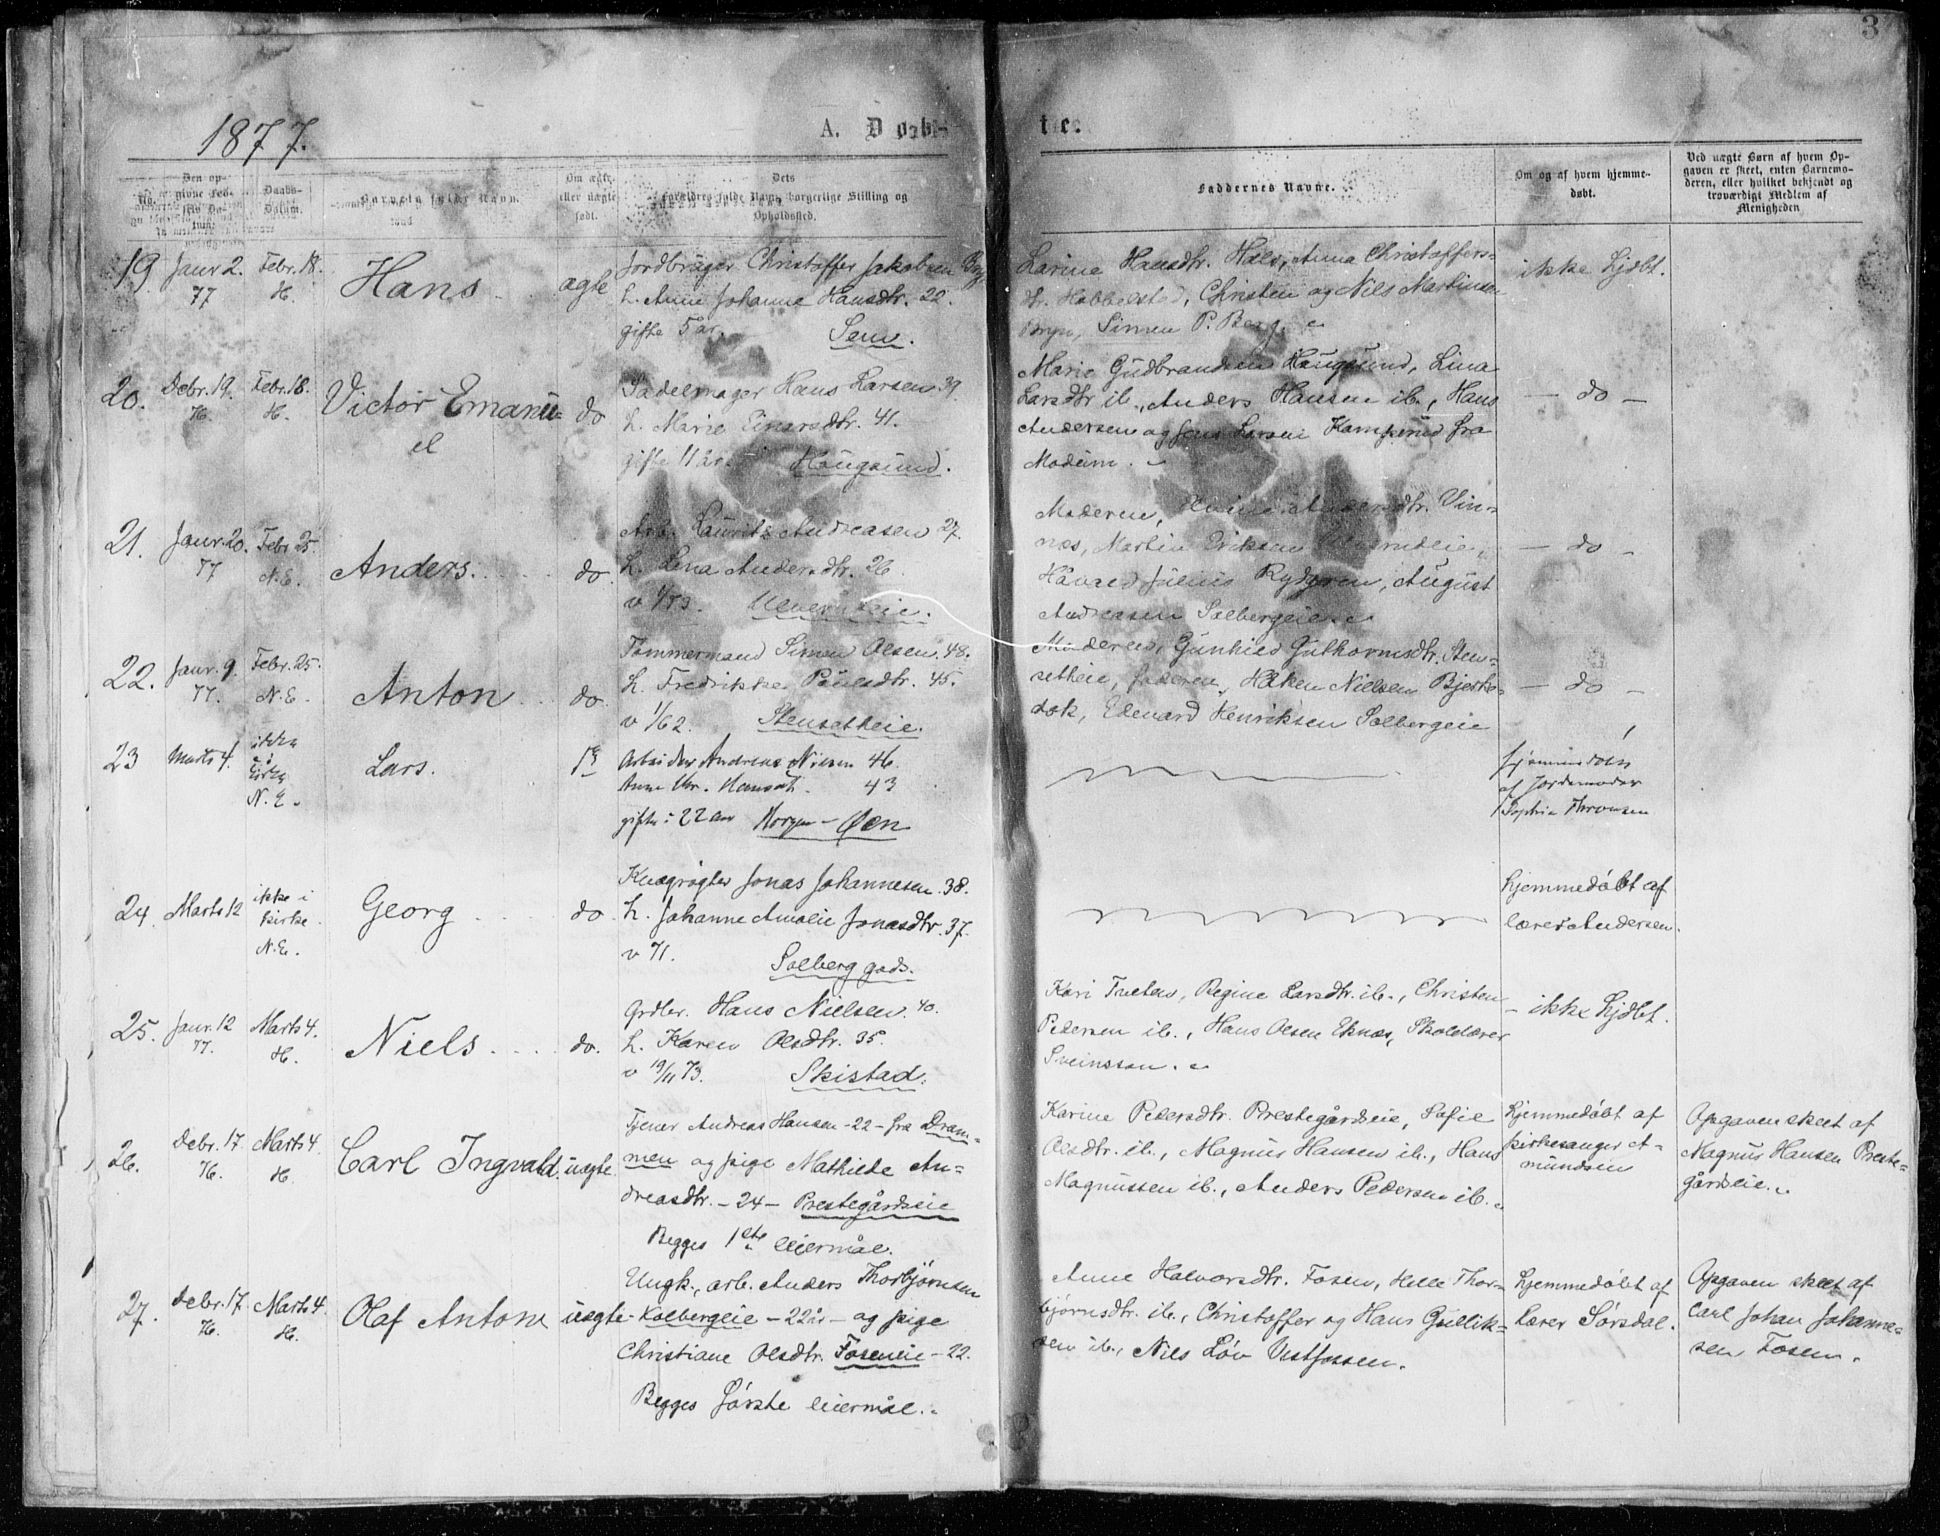 3
1877.
A. Døbte.
No.
Den opgivne Fødsels Datum.
Daabs-Datum.
Barnets fulde Navn.
Om ægte eller uægte født.
Dets Forældres fulde Navn, borgerlige Stilling og Opholdssted.
Faddernes Navne.
Om og af hvem hjemmedøbt.
Ved uægte Børn af hvem Opgaven er skeet, enten Barnemoderen, eller hvilket bekjendt og troværdigt Medlem af Menigheden
19
Janr 2. 77
Febr. 18. H.
Hans
ægte
Jordbruger Christoffer Jakobsen
h. Anne Johanne Hansdtr. 22.
gifte 5 år. Sem.
Larine Hansdtr. Hals, Anna Christoffers-
dtr. Hobbelstad, Christen og Nils Martinsen
Bryn, Simen P. Berg.
ikke hjdbt.
20.
Debr. 19. 76.
Febr. 18. H.
Victor Emanu-
el
do
Sadelmager Hans Larsen 39
h. Marie Einarsdtr. 41.
gifte 11 år. Hougsund.
Marie Gudbrandsen Hougsund, Lina
Larsdtr ib., Anders Hansen ib., Hans
Andersen og Jens Larsen Kamperud fra
Modum.
— do —
21.
Janr. 20. 77
Febr 25. N.E.
Anders.
do.
Arb. Laurits Andreasen 27.
h. Lena Andersdtr. 26
v 1/ 73.
Moderen, Andersdtr. Vin-
næs, Martin Eriksen
Håvald Julius Rydgren, August
Andreasen Solbergeie.
— do —
22.
Janr. 9. 77.
Febr. 25. N.E.
Anton
do.
Tømmermand Simen Olsen. 48.
h. Fredrikke Paulsdtr. 45.
v 1/62. Stensetheie.
Moderen, Gunhild Guthormsdtr. Sten-
setheie, faderen, Håken Nielsen Bjerke-
dok, Edvard Henriksen Solbergeie
— do —
23
Marts 4.
ikke i Kirke N.E.
Lars.
Arbeider Andreas Nilsen 46.
Anne Hansdt. 43
gifte: 22 aar Horgen - Øen
hjemmedøbt
af Jordemoder
Sophie Thronsen
24.
Marts 12
ikke i kirke. N.E.
Georg
do.
Kvægrøgter Jonas Johannesen. 38.
h. Johanne Amalie Jonasdtr. 37.
v 71. Solberg gods.
hjemmedøbt af
lærer Andersen.
25.
Janr. 12 77.
Marts 4. H.
Niels
do.
Grdbr. Hans Nielsen. 40.
h. Karen Olsdtr. 35.
v 19/11 73. Skistad.
Kari Tveten, Regine Larsdtr. ib., Christen
Pedersen ib., Hans Olsen Eknæs, Skolelærer
Sveinsson.
ikke hjdbt.
26.
Debr. 17 76.
Marts 4. H.
Carl Ingvald.
uægte
Tjener Andreas Hansen - 22 - fra Dram-
men og pige Mathilde An-
dreasdtr. - 24 - Prestegårdseie
Begges 1ste leiermål.
Karine Pedersdtr. Prestegårdseie, Sofie
Olsdtr. ib., Magnus Hansen ib., Hans
Magnussen ib., Anders Pedersen ib.
hjemmedøbt af
kirkesanger A-
mundsen
Opgaven skeet af
Magnus Hansen Preste-
gårdseie.
27.
Debr. 17 76.
Marts 4. H.
Olaf Anton
uægte
Ungk., arb. Anders Thorbjørnsen
Kolbergeie - 22 år - og pige
Christiane Olsdtr. Foseneie - 22.
Begges første leiermål.
Anne Halvorsdtr. Fosen, Helle Thor-
bjørnsdtr. ib., Christoffer og Hans Gullik-
sen ib., Nils Løv Vestfossen.
hjemmedøbt af
lærer Sørsdal.
Opgaven skeet af
Carl Johan Johanne-
sen Fosen.